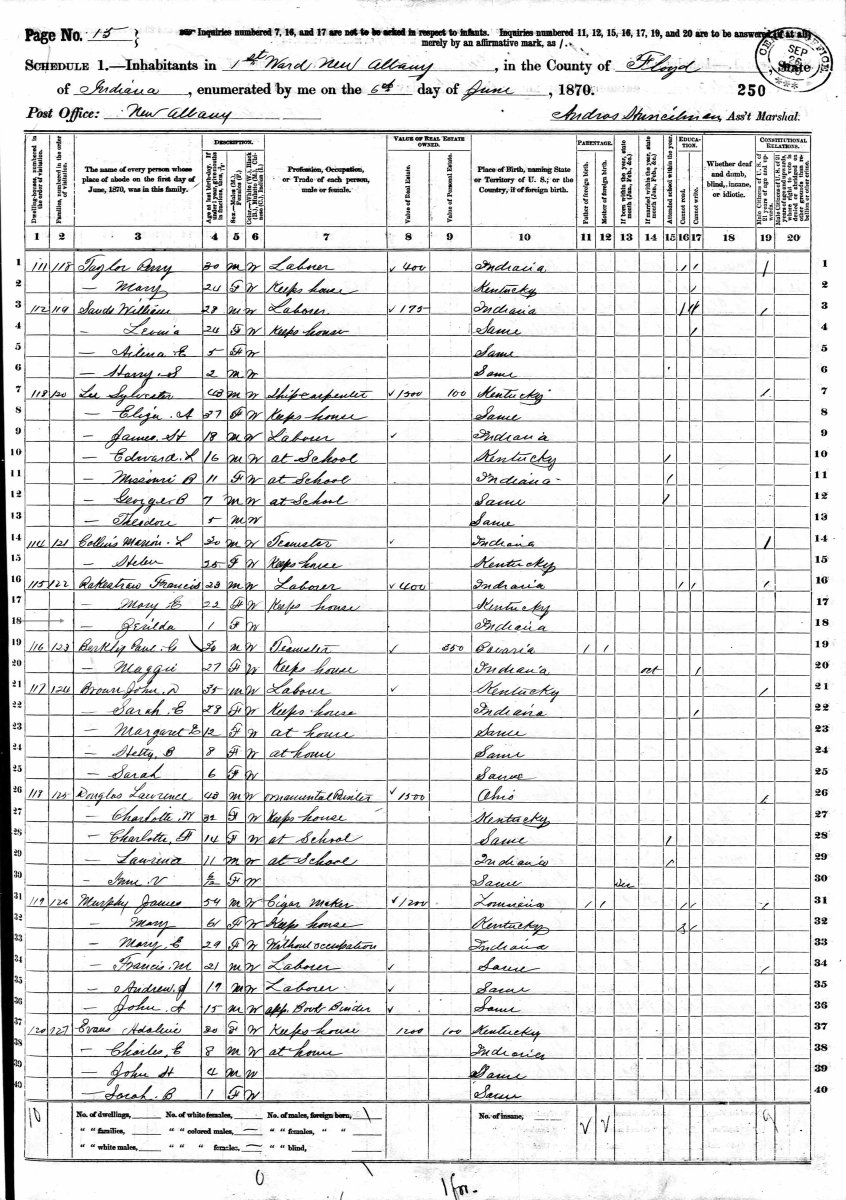 Page No. 15
Inquiries numbered 7, 16, and 17 are not to be asked in respect to infants. Inquiries numbered 11, 12, 15, 16, 17, 19, and 20 are to be answered (if at all) merely by an affirmative mark, as /.
SCHEDULE 1.—Inhabitants in 1st Ward New Albany, in the County of Floyd, State
of Indiana, enumerated by me on the 6th day of June, 1870. 250
Post Office: New Albany Ass't Marshal.
CENSUS OFFICE SEP 26
DESCRIPTION. VALUE OF REAL ESTATE OWNED. PARENTAGE. EDUCATION. CONSTITUTIONAL RELATIONS.
Dwelling-houses, numbered in the order of visitation.
Families, numbered in the order of visitation.
The name of every person whose place of abode on the first day of June, 1870, was in this family.
Profession, Occupation, or Trade of each person, male or female.
Value of Real Estate.
Value of Personal Estate.
Place of Birth, naming State or Territory of U. S.; or the Country, if of foreign birth.
Father of foreign birth.
Mother of foreign birth.
If born within the year, state month (Jan., Feb., &c.)
If married within the year, state month (Jan., Feb., &c.)
Attended school within the year.
Cannot read.
Cannot write.
Whether deaf and dumb, blind, insane, or idiotic.
1 2 3 4 5 6 7 8 9 10 11 12 13 14 15 16 17 18 19 20
1 111 118 Taylor Perry 30 M W Laborer 400 Indiana / / / 1
2 — Mary 24 F W Keeps house Kentucky / 2
3 112 119 Sands William 28 M W Laborer 175 Indiana / / 3
4 — 24 F W Keeps house Same / 4
5 — E 5 F W Same 5
6 — Harry S 2 M W Same 6
7 120 Lee Sylvester 43 M W Ship carpenter 1300 100 Kentucky / 7
8 — Eliza A 37 F W Keeps house Same 8
9 — James H 18 M W Laborer Indiana 9
10 — Edward L 16 M W at School Kentucky / 10
11 — Missouri B 11 F W at School Indiana / 11
12 — George B 7 M W at School Same / 12
13 — Theodore 5 M W Same 13
14 114 121 Collins Marion L 30 M W Teamster Indiana / 14
15 — Helen 25 F W Keeps house Kentucky 15
16 115 122 Rakestraw Francis 23 M W Laborer 400 Indiana / / / 16
17 — Mary E 22 F W Keeps house Kentucky 17
18 — 1 F W Indiana 18
19 116 123 30 M W Teamster 350 Bavaria / / 19
20 — Maggie 27 F W Keeps house Indiana Oct / 20
21 117 124 Brown John D 35 M W Laborer Kentucky / 21
22 — Sarah E 28 F W Keeps house Indiana / 22
23 — Margaret E 12 F W at house Same 23
24 — Hetty B 8 F W at home Same 24
25 — Sarah 6 F W Same 25
26 118 125 Douglas Lawrence 43 M W Ornamental Painter 1500 Ohio / 26
27 — Charlotte W 32 F W Keeps house Kentucky 27
28 — Charlotte H 14 F W at School Same / 28
29 — Lawrence 11 M W at School Indiana / 29
30 — V F W Same Dec 30
31 119 126 Murphy James 54 M W Cigar Maker 1200 Louisiana / / / / / 31
32 — Mary 61 F W Keeps house Kentucky / 32
33 — Mary E 29 F W Without occupation Indiana 33
34 — Francis M 21 M W Laborer Same / 34
35 — Andrew J 19 M W Laborer Same 35
36 — John A 15 M W app. Book Binder Same 36
37 120 127 Evans Adaline 30 F W Keeps house 1200 100 Kentucky 37
38 — Charles E 8 M W at home Indiana 38
39 — John H 4 M W Same 39
40 — Sarah B 1 F W Same 40
10 No. of dwellings, No. of white females, No. of males, foreign born, 1 No. of insane,
" " families, " " colored males, — " " females, " "
" " white males, " " " females, — " " blind,
0 1 for.